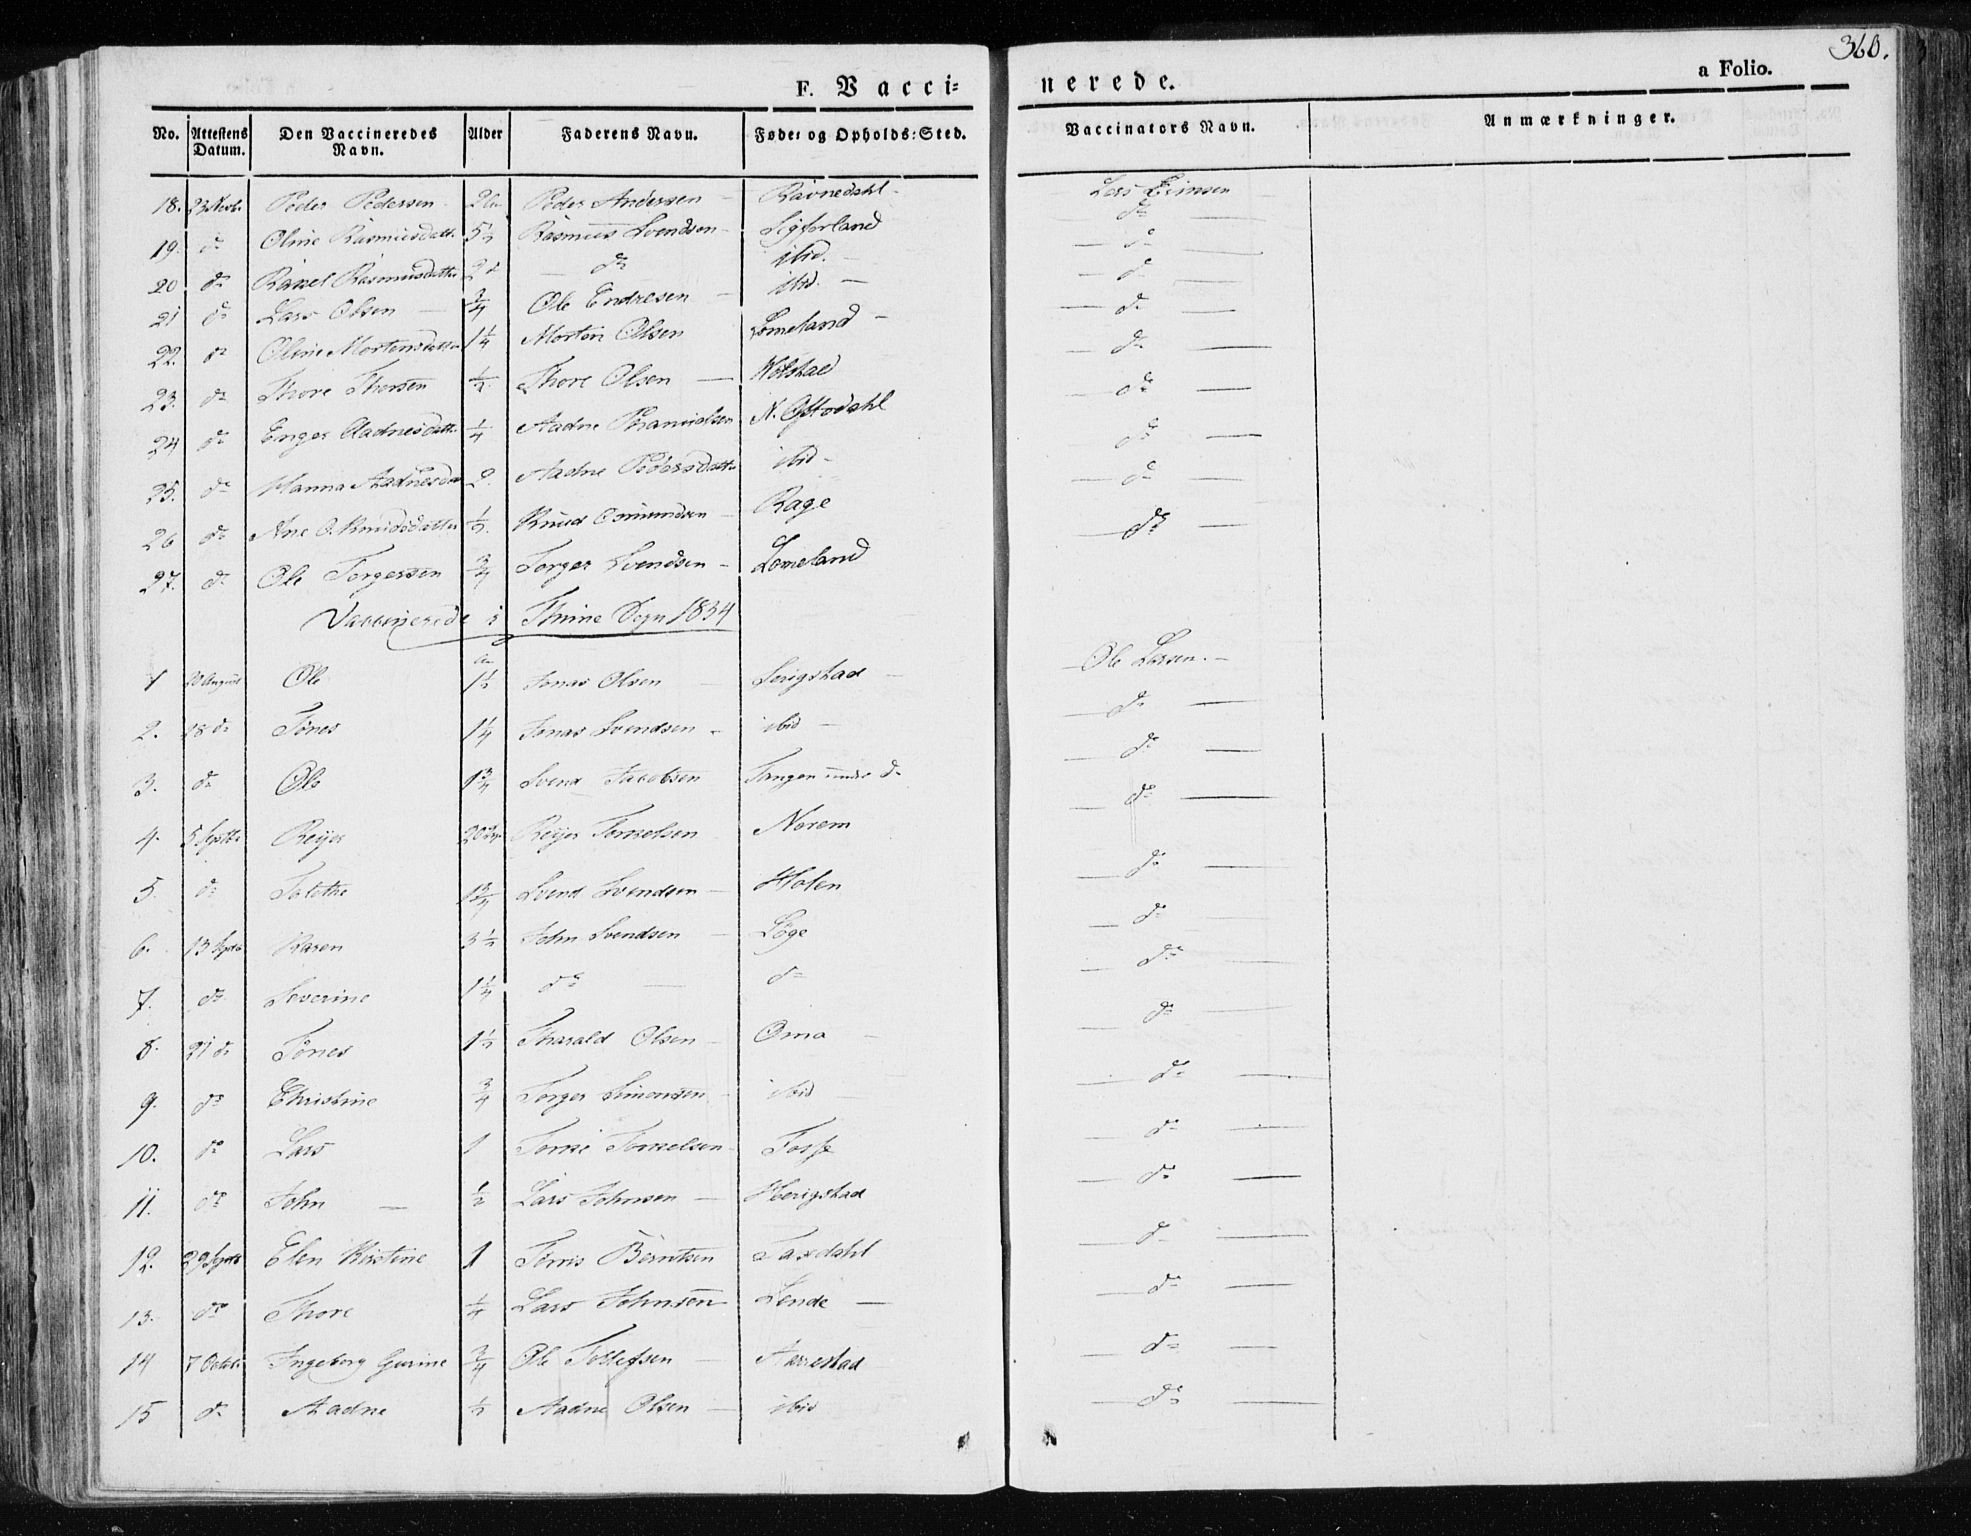 360.
F. Vacci=nerede.
a Folio.
No. Attestens Datum. Den Vaccineredes Navn. Alder Faderens Navn. Føde: og Opholds:Sted. Vaccinators Navn. Anmærkninger.
18. 23 Novb. Peder Pedersen Peder Andersen Ravnedahl Lars
19. do Oline Rasmusdatt. 5½ Rasmus Svendsen Sigforland do
20 do Rasmusdatter do ibid. do
21 do Lars Olsen ¾ Ole Endresen ibid. do
22. do Oline Mortensdatter 1¼ Morten Olsen Lomeland do
23. do Thore Thorsen ½ Thore Olsen do
24 do Enger Aadnesdatt. ¼ Aadne N. do
25. do Hanna Aadnesda 2 Aadne Pedersdatter ibid do
26 do Ane O. Knudsdatter ½ Knud Osmundsen Rage do
27. do Ole Torgersen ¾ Torger Svendsen Lomeland do
Vaccinerede i Thime Sogn 1834
1 20 August Ole 1½ Jonas Olsen Serigstad Ole Larsen.
2. 18 do Tønes 1¼ Jonas Svendsen ibid do
3. do Ole 1¾ Svend Jacobsen Tangen under do do
4. 5 Septb. Reijer Reijer Tønnesen Norem do
5. do Tolette 1¾ Svend Svendsen Holen do
6. 13 Septb Karen 3½ John Svendsen Løge do
7. do Severine 1¼ do do do
8. 21 do Tønes 1½ Tharald Olsen Oma do
9. do Christine ¾ Torger Simonsen ibid do
10. do Lars 1 Fosse do
11. do John ½ Lars Johnsen Herigstad do
12. 29 Septb Elen Kirstine 1 Tørris Berntsen Taxdahl do
13. do Thore Lars Johnsen Lende do
14 7 Octob. Ingeborg Gurine ¾ Ole Tollefsen Aarrestad do
15 do Aadne ½ Aadne Olsen ibid do